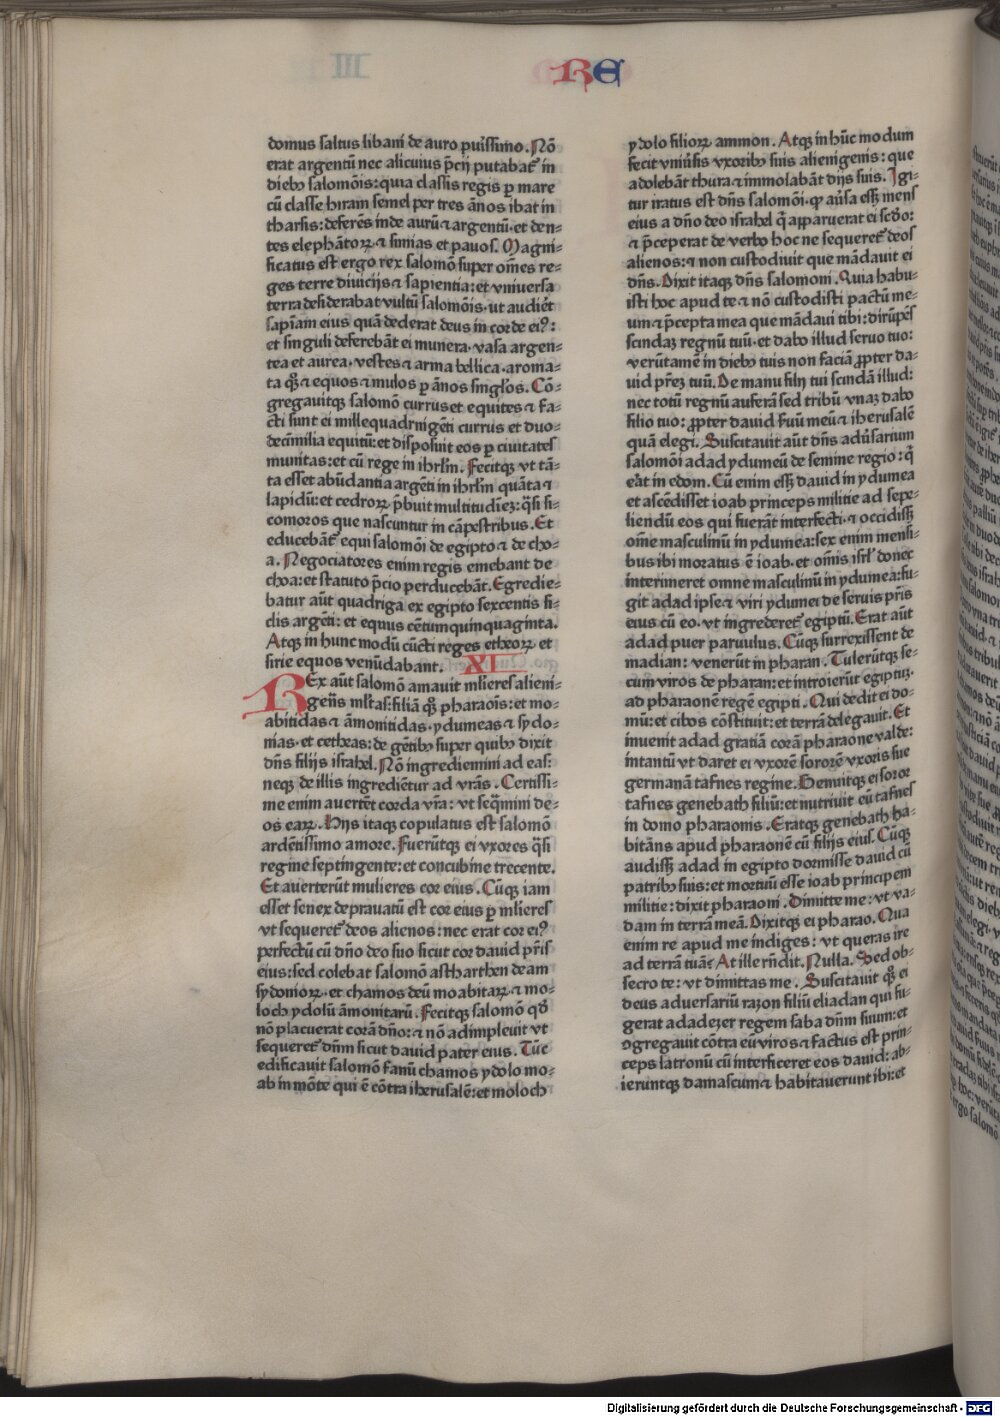 RE
domus saltus libani de auro puriſſimo. Nō
erat argentū nec alicuius p̄cij putabat᷑ in
dieb᷒ ſalomōis: quia claſſis regis ꝑ mare
cū claſſe hiram ſemel per tres ānos ibat in
tharſis: deferēs inde aurū ⁊ argentū. et den⸗
tes elephātoꝝ ⁊ ſimias et pauoſ. Magni⸗
ficatus eſt ergo rex ſalomō ſuper om̄es re⸗
ges terre diuicijs ⁊ ſapientia: et vniuerſa
terra deſiderabat vultū ſalomōis. ut audiēt
ſapiam eius quā dederat deus in corde ei᷒:
et ſinguli deferebāt ei munera. vaſa argen⸗
tea et aurea. veſtes ⁊ arma bellica. aroma⸗
ta qꝫ ⁊ equos ⁊ mulos ꝑ ānos ſingl̓os. Cō⸗
gregauitqꝫ ſalomō currus et equites ⁊ fa⸗
cti ſunt ei mille quadrnigēti currus et duo⸗
decīmilia equitū: et diſpoſuit eos ꝑ ciuitateſ
munitas: et cū rege in ihrl̄m. Fecitqꝫ vt tā⸗
ta eſſet abūdantia argēti in ihrl̄m quāta ⁊
lapidū: et cedroꝝ p̄buit multitudiēꝫ: q̄ſi ſi⸗
comoros que naſcuntur in cāpeſtribus. Et
educebāt᷑ equi ſalomōi de egipto ⁊ de cho⸗
a. Negociatores enim regis emebant de
choa: et ſtatuto p̄cio perducebāt. Egredie⸗
batur aūt quadriga ex egipto ſexcentis ſi⸗
clis argēti: et equus cētum quinquaginta.
Atqꝫ in hunc modū cūcti reges etheoꝝ et
ſirie equos venūdabant. XI
REx aūt ſalomō amauit ml̄ieres alieni⸗
genſ̄ ml̄taſ: filiā qꝫ pharaōis: et mo⸗
abitidas ⁊ āmonitidas. ydumeas ⁊ ſydo⸗
nias. et cetheas: de gētib᷒ ſuper quib᷒ dixit
dn̄s filijs iſrahel. Nō ingrediemini ad eaſ:
neqꝫ de illis ingrediētur ad vrās. Certiſſi⸗
me enim auertēt corda vr̄a: vt ſeq̄mini de⸗
os eaꝝ. Hijs itaqꝫ copulatus eſt ſalomō
ardētiſſimo amore. Fuerūtqꝫ ei vxores q̄ſi
regine ſeptingente: et concubine trecente.
Et auerterūt mulieres cor eius. Cūqꝫ iam
eſſet ſenex deprauatū eſt cor eius ꝑ ml̄iereſ
vt ſequeret᷑ deos alienos: nec erat cor ei᷒
perfectū cū dn̄o deo ſuo ſicut cor dauid pr̄iſ
eius: ſed colebat ſalomō aſtharthen deam
ſydonioꝝ. et chamos deū moabitaꝝ ⁊ mo⸗
loch ydolū āmonitarū. Fecitqꝫ ſalomō qd̄
nō placuerat corā dn̄o: ⁊ nō adimpleuit vt
ſequeret᷑ dn̄m ſicut dauid pater eius. Tūc
edificauit ſalomō fanū chamos ydolo mo⸗
ab in mōte qui ē cōtra iheruſalē: et moloch
ydolo filioꝝ ammon. Atqꝫ in hūc modum
fecit vniūſis vxorib᷒ ſuis alienigenis: que
adolebāt thura ⁊ immolabāt dijs ſuis. Igi⸗
tur iratus eſt dn̄s ſalomōi. ꝙ aūſa eſſꝫ mens
eius a dn̄o deo iſrahel q̄ apparuerat ei ſcd̄o:
⁊ p̄ceperat de verbo hoc ne ſequeret᷑ deoſ
alienos: ⁊ non cuſtodiuit que mādauit ei
dn̄s. Dixit itaqꝫ dn̄s ſalomoni. Quia habu⸗
iſti hoc apud te ⁊ nō cuſtodiſti pactū me⸗
um ⁊ p̄cepta mea que mādaui tibi: dirūpēſ
ſcindaꝫ regnū tuū. et dabo illud ſeruo tuo:
verūtamē in dieb᷒ tuis non faciā ꝓpter da⸗
uid pr̄eꝫ tuū. De manu filij tui ſcindā illud:
nec totū regnū auferā ſed tribū vnaꝫ dabo
filio tuo: ꝓpter dauid ſ̄uū meū ⁊ iheruſalē
quā elegi. Suſcitauit aūt dn̄s adūſarium
ſalomōi adad ydumeū de ſemine regio: q̄
erāt in edom. Cū enim eſſꝫ dauid in ydumea
et aſcēdiſſet ioab princeps militie ad ſepe⸗
liendū eos qui fuerāt interfecti. ⁊ occidiſſꝫ
om̄e maſculinū in ydumea: ſex enim menſi⸗
bus ibi moratus ē ioab. et om̄is iſrl̄ donec
interimeret omne maſculinū in ydumea: fu⸗
git adad ipſe ⁊ viri ydumei de ſeruis pr̄is
eius cū eo. vt ingrederet᷑ egiptū. Erat aūt
adad puer paruulus. Cūqꝫ ſurrexiſſent de
madian: venerūt in pharan. Tulerūtqꝫ ſe⸗
cum viros de pharan: et introierūt egiptū.
ad pharaonē regē egipti. Qui dedit ei do⸗
mū: et cibos cōſtituit: et terrā delegauit. Et
inuenit adad gratiā corā pharaone valde:
intantū vt daret ei vxorē ſororē vxoris ſue
germanā tafnes regine. Genuitqꝫ ei ſoror
tafnes genebath filiū: et nutriuit eū tafneſ
in domo pharaonis. Eratqꝫ genebath ha⸗
bitāns apud pharaonē cū filijs eiuſ. Cūqꝫ
audiſſꝫ adad in egipto dormiſſe dauid cū
patrib᷒ ſuis: et mortuū eſſe ioab principem
militie: dixit pharaoni. Dimitte me: vt va⸗
dam in terrā meā. Dixitqꝫ ei pharao. Qua
enim re apud me indiges: vt queras ire
ad terrā tuā: At ille rn̄dit. Nulla. Sed ob⸗
ſecro te: vt dimittas me. Suſcitauit qꝫ ei
deus aduerſariū razon filiū eliadan qui fu⸗
gerat adadezer regem ſaba dn̄m ſuum: et
ↄgregauit cōtra eū viros ⁊ factus eſt prin⸗
ceps latronū cū interficeret eos dauid: ab⸗
ieruntqꝫ damaſcum ⁊ habitauerunt ibi: et
Digitalisierung gefördert durch die Deutsche Forschungsgemeinschaft - DFG